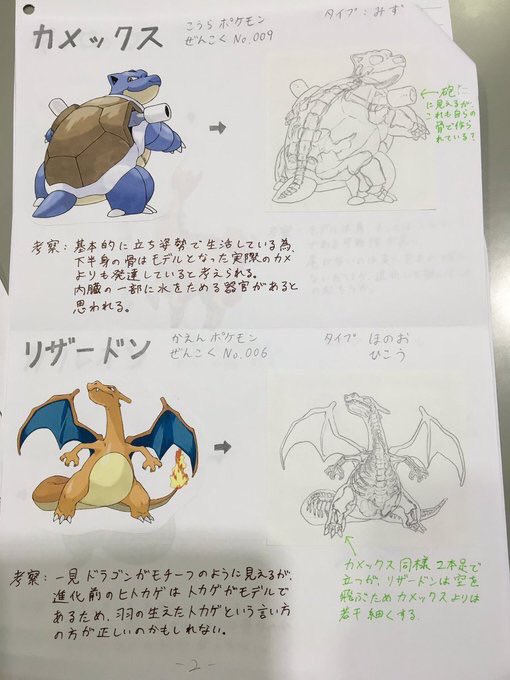 カメックス
こうらポケモン
ぜんこく No.009
タイプ：みず
← 砲に見えるが、
これも自らの
骨で作ら
れている？
考察：基本的に立ち姿勢で生活している為、
下半身の骨はモデルとなった実際のカメ
よりも発達していると考えられる。
内臓の一部に水をためる器官があると
思われる。
リザードン
かえんポケモン
ぜんこく No.006
タイプ ほのお
ひこう
考察：一見ドラゴンがモチーフのように見えるが、
進化前のヒトカゲはトカゲがモデルで
あるため、羽の生えたトカゲという言い方
の方が正しいのかもしれない。
カメックス同様2本足で
立つが、リザードンは空を
飛ぶためカメックスよりは
若干細くする.
-2-